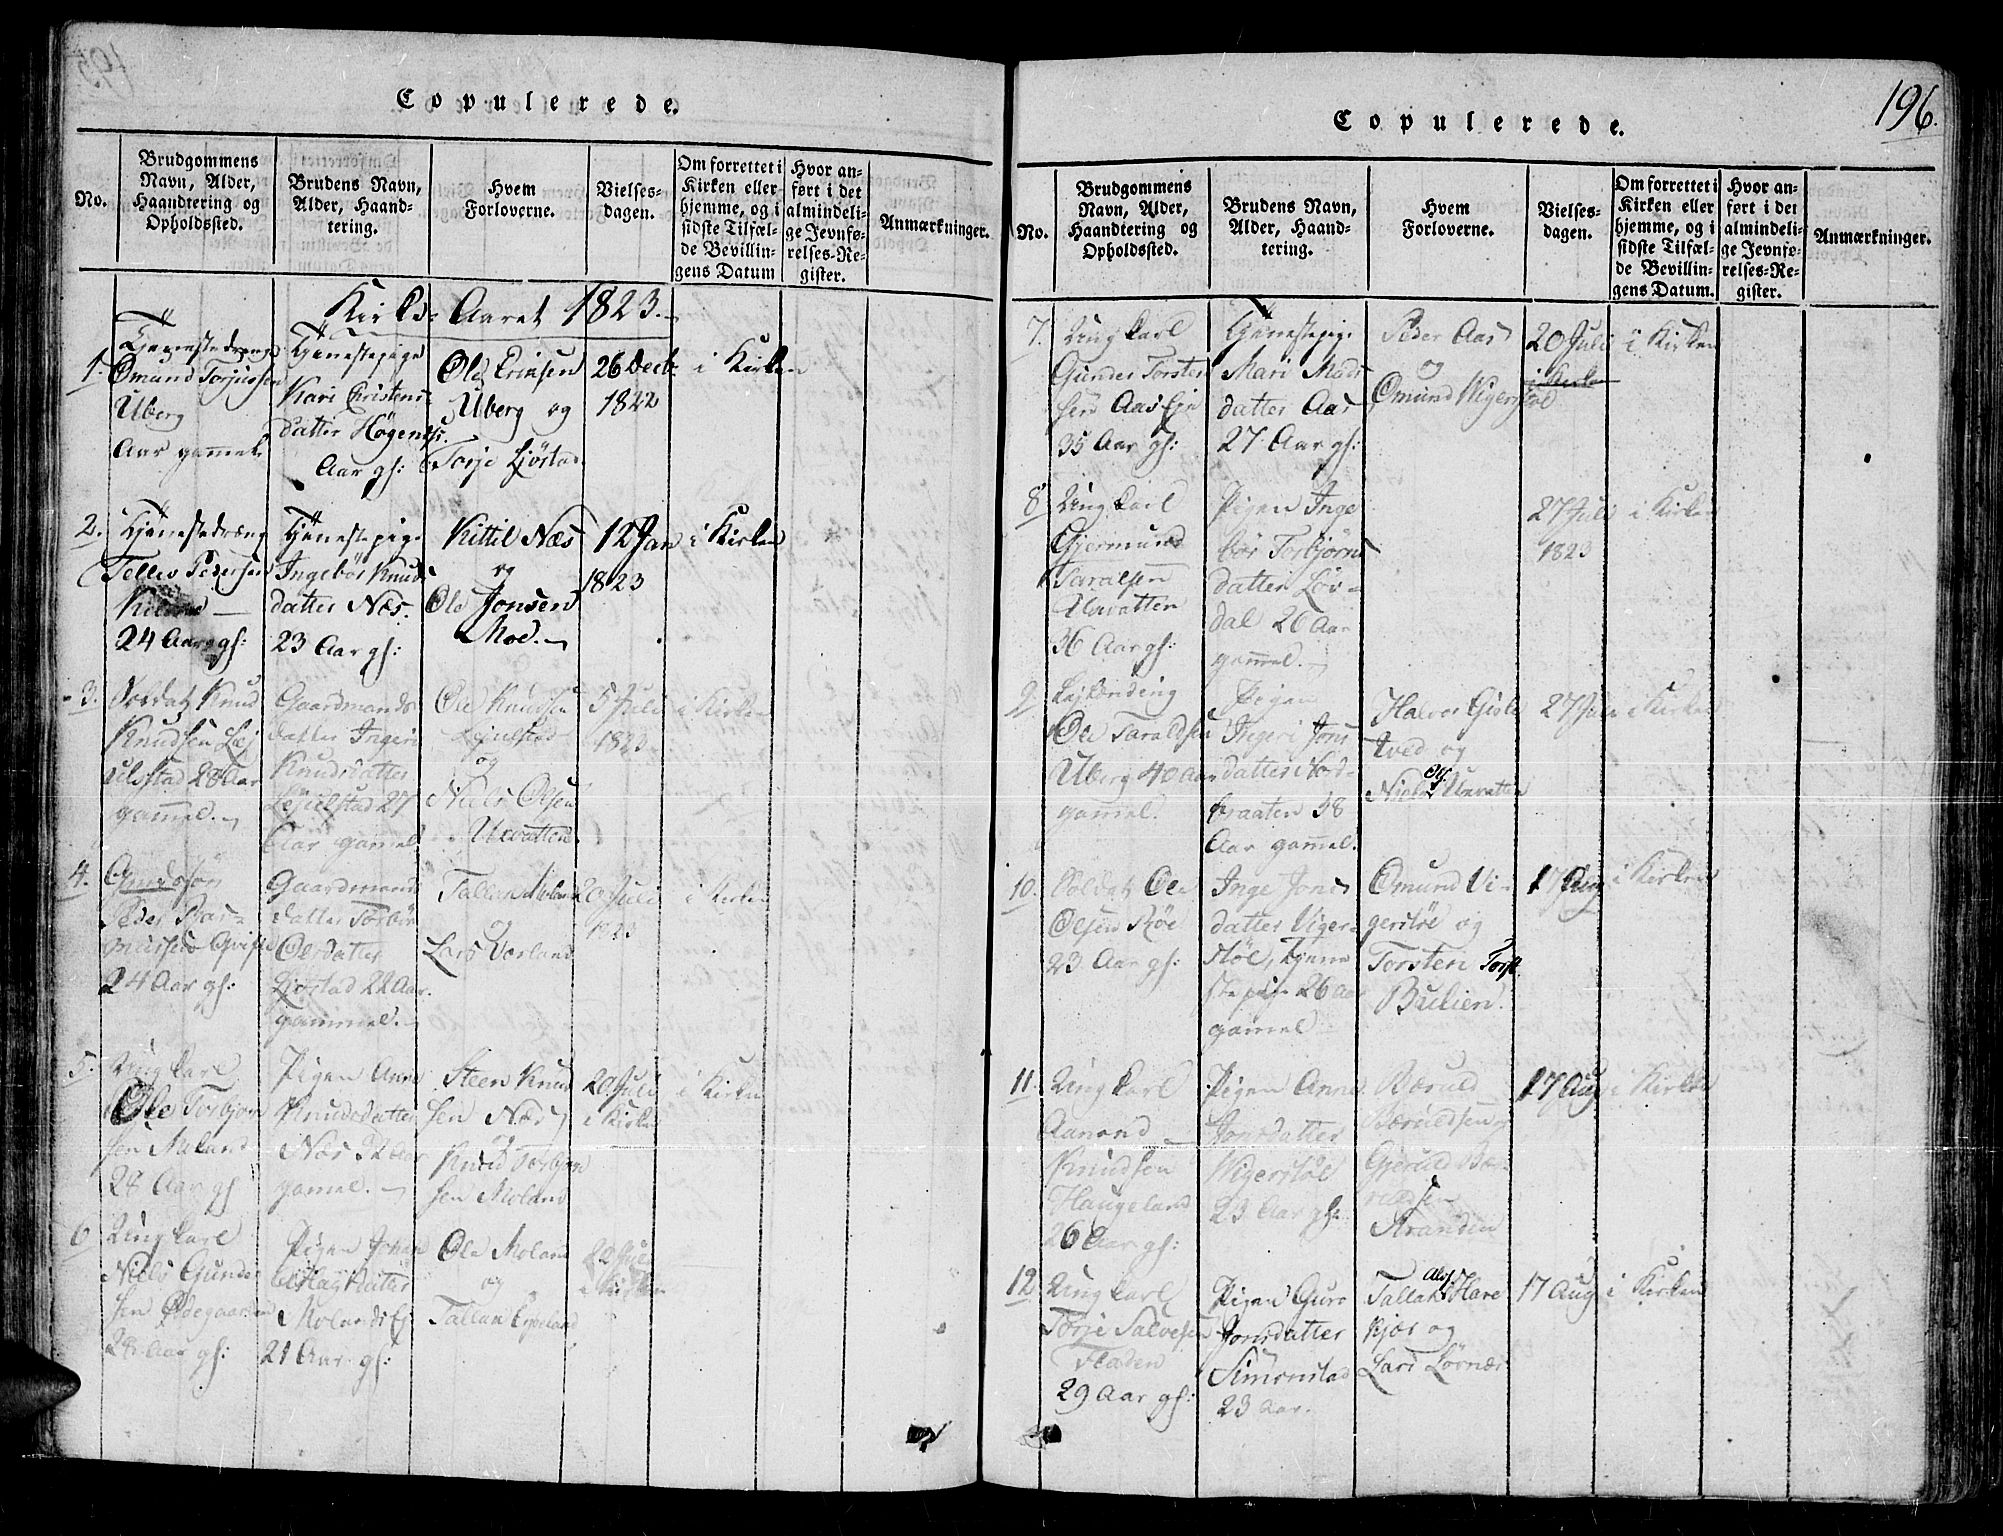 Copulerede.
No.
Brudgommens
Navn, Alder,
Haandtering og
Opholdssted.
Brudens Navn,
Alder, Haand-
tering.
Hvem
Forloverne.
Vielses-
dagen.
Om forrettet i
Kirken eller
hjemme, og i
sidste Tilfæl-
de Bevillin-
gens Datum
Hvor an-
ført i det
almindeli-
ge Jevnfø-
relses-Re-
gister.
Anmærkninger.
Kirke-Aaret 1823.
1.
Tjenestedreng
Omund Torjussen
Uberg
Aar gammel.
Tjenestepige
Kari Christens-
datter
Aar gl:
Ole
Uberg og
Torje Ljøstad
26 Decbr
1822
i Kirken
2.
Tjenestedræng
Tellev Pedersen
24 Aar gl:
Tjenestepige
Ingebor Knuds
datter Næs
23 Aar gl:
Kittil Næs
og
Ole Jonsen
Moe.
12 Jan
1823
i Kirken
3.
Soldat Knud
Knudsen Lej
ulstad 28 Aar
gammel.
Gaardmands
datter Ingeri
Knudsdatter
Lejulstad 27
Aar gamel
Ole Knudsen
Lejulstad
og
Niels Olsen
Uvatten
5 Juli
1823
i Kirken
4.
Peder
24 Aar gl:
Gaardmands
datter Torbør
Olesdatter
Ljøstad 22 Aar
gammel.
Tallak Moland
og
Lars Værland
20 Juli
1823
i Kirken
5.
Ungkarl
Ole Torbjørn
sen Moland
28 Aar gl
Pigen Anne
Knudsdatter
Næs 32 Aar
gamel.
Steen Knud
sen Næs
og
Knud Torbjørn
sen Moland
20 Juli
i Kirken
i Kirken
6
Ungkarl
Niels Gunder
sen Ødegaarden
28 Aar gl:
Pigen Johan
Molands Ej
21 Aar gl:
Ole Moland
og
Tallak Espeland
20 Juli
i Kirken
196.
Copulerede.
No.
Brudgommens
Navn, Alder,
Haandtering og
Opholdssted.
Brudens Navn,
Alder, Haand-
tering.
Hvem
Forloverne.
Vielses-
dagen.
Om forrettet i
Kirken eller
hjemme, og i
sidste Tilfæl-
de Bevillin-
gens Datum.
Hvor an-
ført i det
almindeli-
ge Jevnfø-
relses-Re-
gister.
Anmærkninger.
7.
Ungkarl
Gunder Torsten
sen Aas Eje
35 Aar gl:
Tjenestepige
Mari Mads
datter Aas
27 Aar gl:
Peder Aas
og
Omund Wigerstøl
20 Juli
i Kirken
i Kirken
8
Ungkarl
Gjermund
Taralsen
Uvatten
36 Aar gl:
Pigen Inge
bør Torbjørns
datter Løv-
dal 26 Aar
gammel.
27 Juli
1823
i Kirken
9.
Lejlænding
Ole Taraldsen
Uberg 40 Aar
gammel.
Pigen
Ingeri Jons
datter Nord-
braaten 38
Aar gammel.
Halvor Gisle
tved og
Niels Ols. Uvatten
27 Juli
i Kirken
10.
Soldat Ole
Olsen Røe
23 Aar gl:
Inge Jons
datter Viger-
støl, Tjene
stepige 26 Aar
gamel
Omund Vi-
gerstøl og
Torsten Torst.
17 Aug
i Kirken
11.
Ungkarl
Aanond
Knudsen
Haugeland
26 Aar gl:
Pigen Anne
Jonsdatter
Wigerstøl
23 Aar gl:
Bæruld
Bæruldsen og
Gjeruld Bæ-
ruldsen
Stranden
17 Aug
i Kirken
12
Ungkarl
Torje Salvesen
Fladen
29 Aar gl:
Pigen Guro
Jonsdatter
Simonstad
23 Aar.
Tallak Alvs. Hare
kjær og
Lars Løvnæs
17 Aug
i Kirken